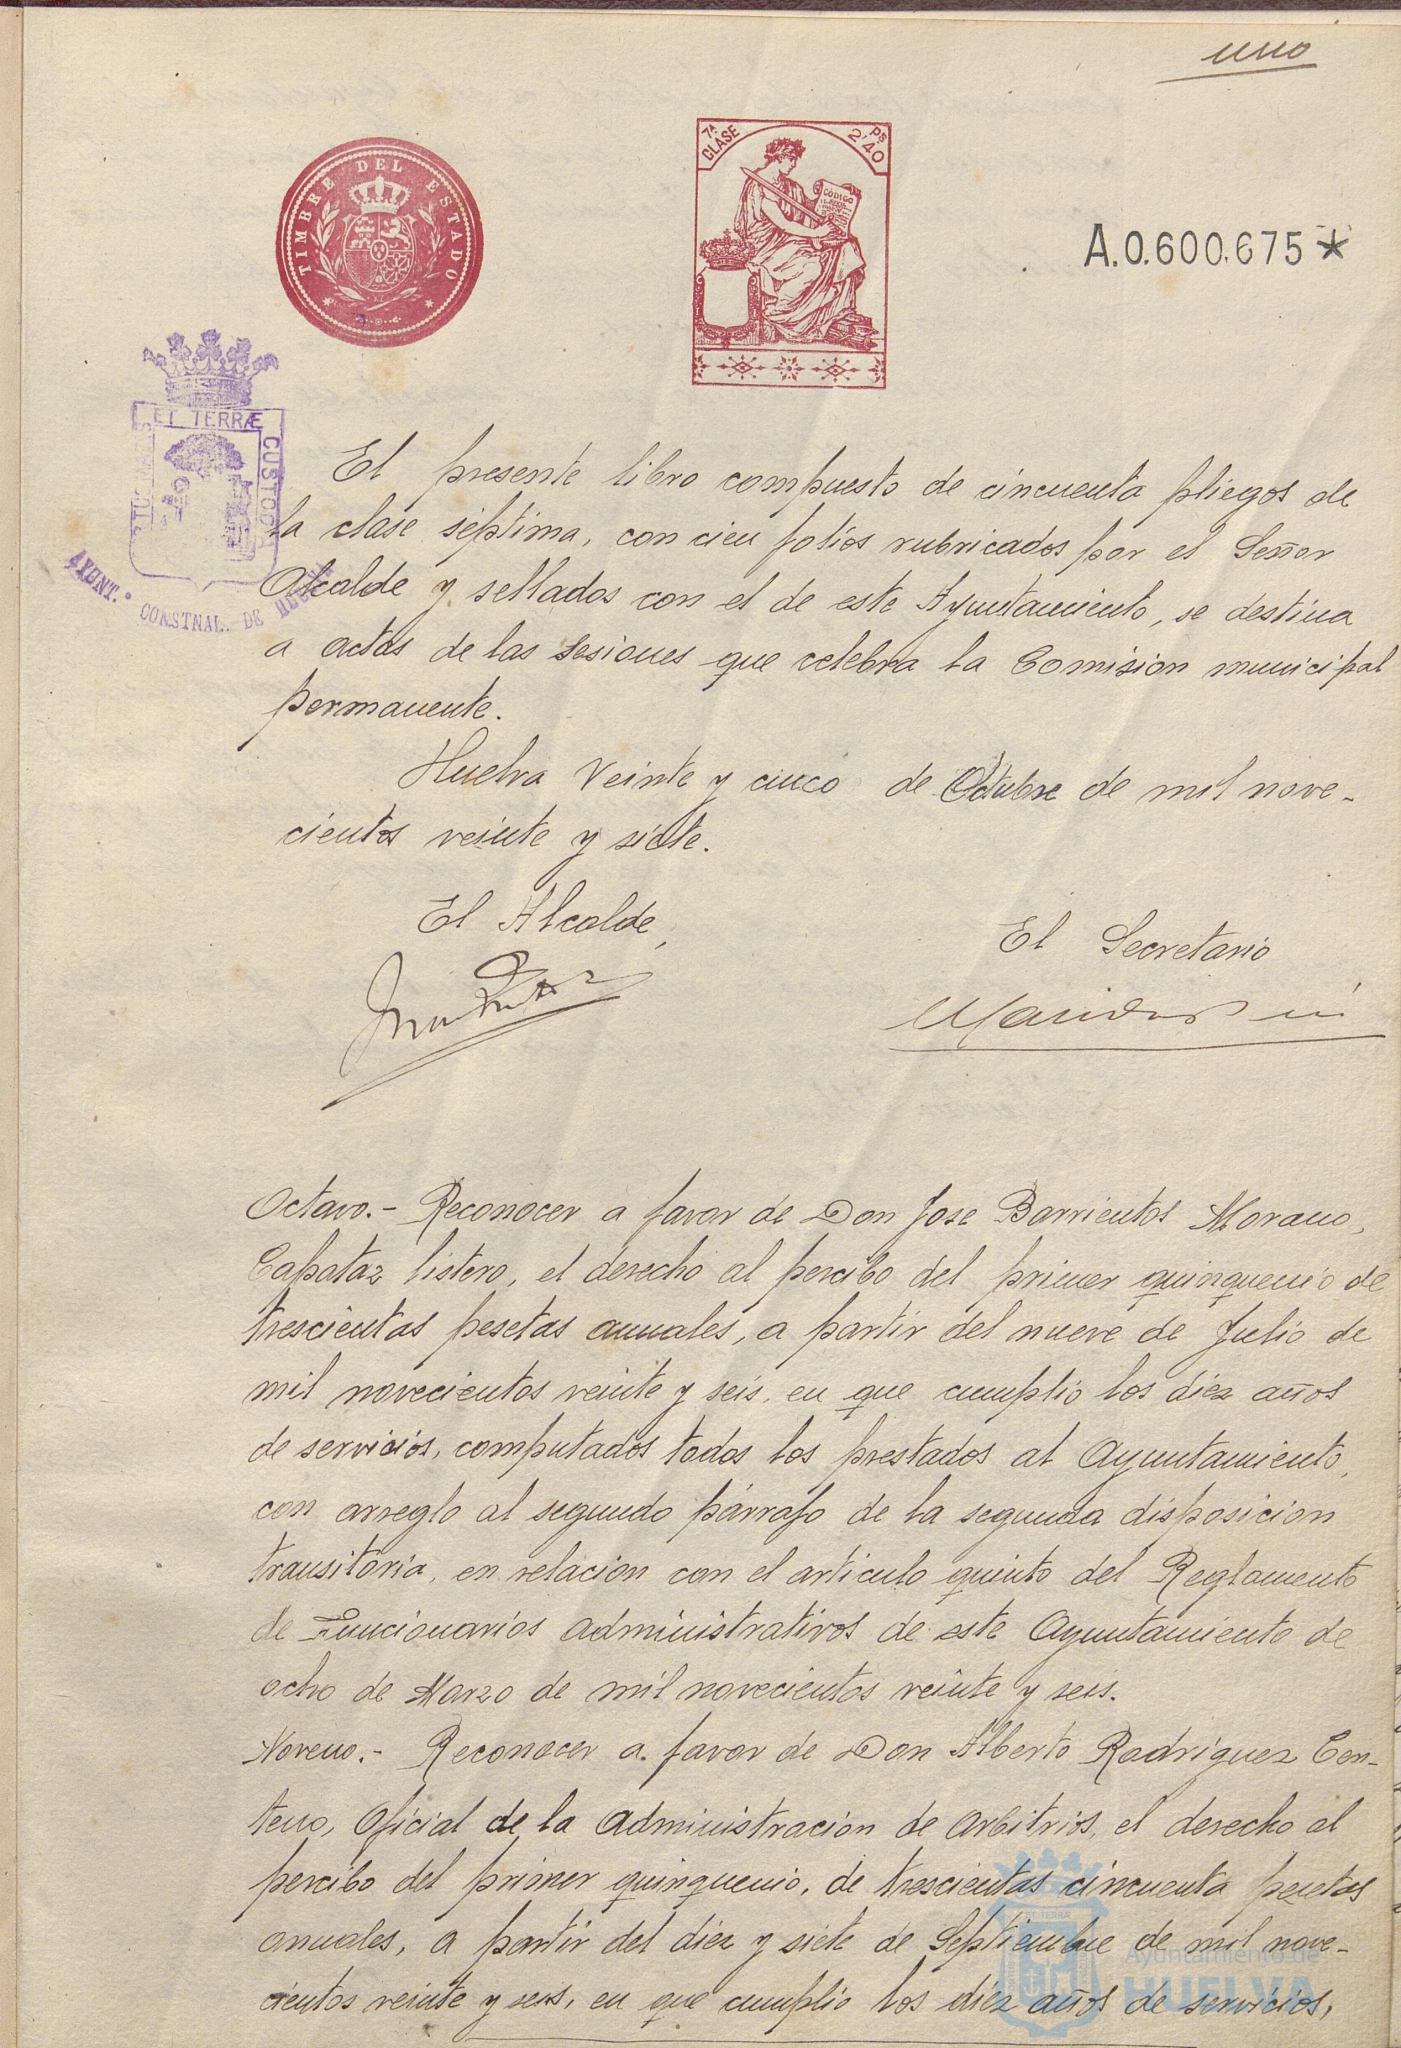 uno
TIMBRE DEL ESTADO
7ª CLASE
Ps 2'40
CODIGO
A.0.600.675*
ET TERRÆ CUSTOD
AYUNT.º CONSTNAL. DE HUELVA
El presente libro compuesto de cincuenta pliegos de
la clase séptima, con cien folios rubricados por el Señor
Alcalde y sellados con el de este Ayuntamiento, se destina
a actas de las sesiones que celebra la Comision municipal
permanente.
Huelva Veinte y cinco de Octubre de mil nove-
cientos veinte y siete.
El Alcalde,
El Secretario
Octavo.- Reconocer a favor de Don Jose Barrientos Morano,
Capataz listero, el derecho al percibo del primer quinquenio de
trescientas pesetas anuales, a partir del nueve de Julio de
mil novecientos veinte y seis, en que cumplio los diez años
de servicios, computados todos los prestados al Ayuntamiento,
con arreglo al segundo párrafo de la segunda disposicion
transitoria, en relacion con el articulo quinto del Reglamento
de Funcionarios administrativos de este Ayuntamiento de
ocho de Marzo de mil novecientos veinte y seis.
Noveno.- Reconocer a favor de Don Alberto Rodriguez Cen-
teno, Oficial de la Administracion de Arbitrios, el derecho al
percibo del primer quinquenio, de trescientas cincuenta pesetas
anuales, a partir del diez y siete de Septiembre de mil nove-
cientos veinte y seis, en que cumplio los diez años de servicios,
Ayuntamiento de
HUELVA